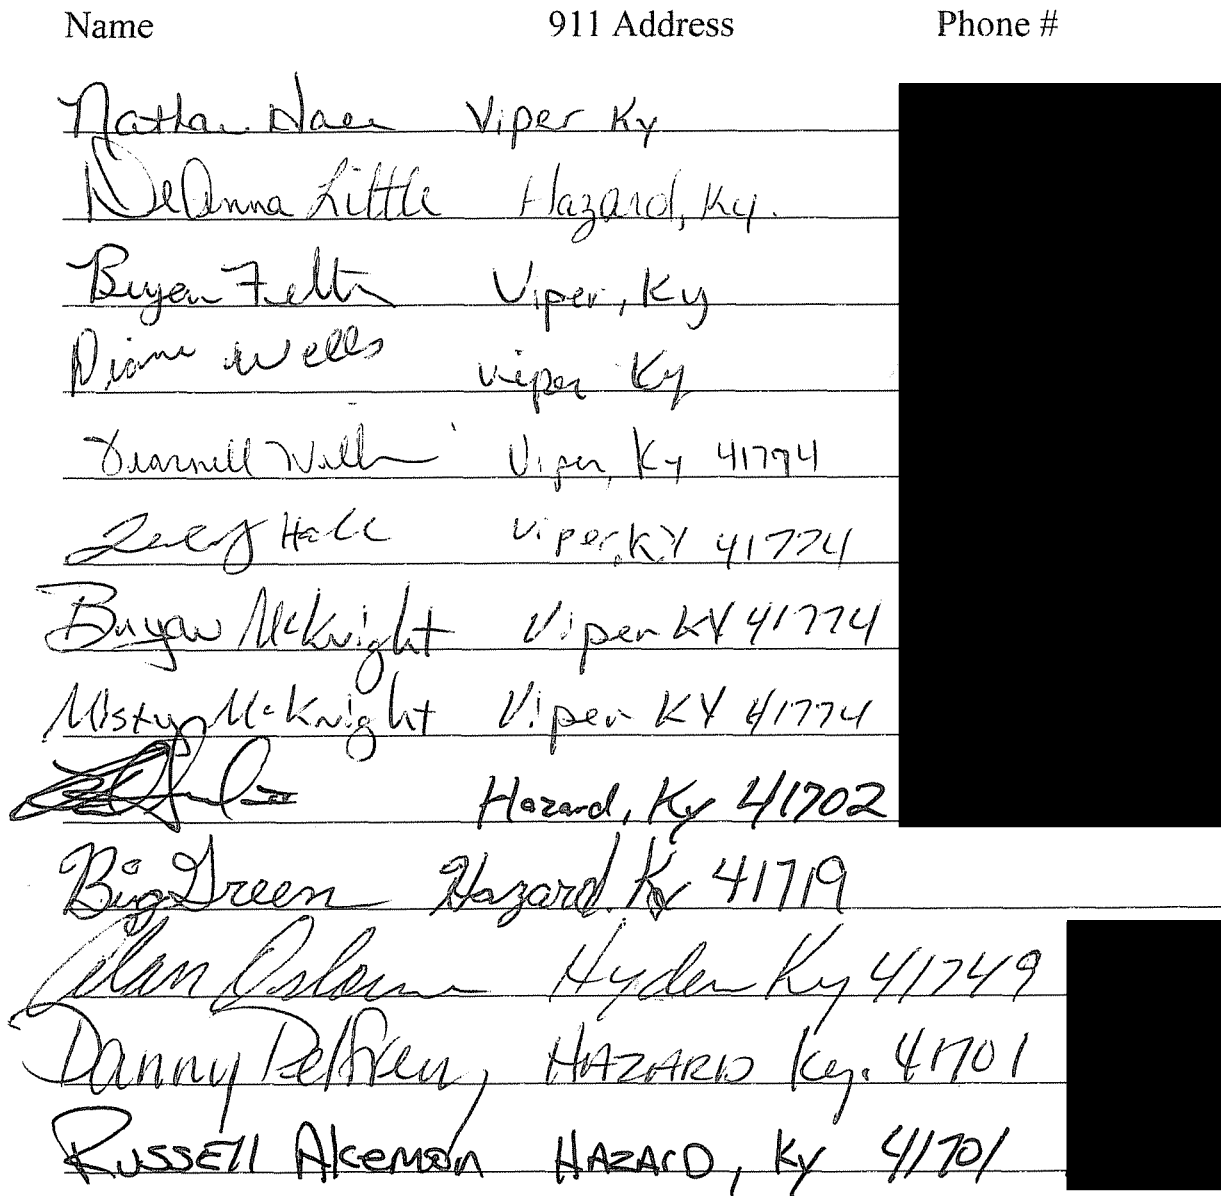 Name 911 Address Phone #
Nathan Viper Ky
DeAnna Little Hazard, Ky.
Viper, Ky
Diane Wells Viper Ky
Viper, Ky 41774
Hall Viper, KY 41774
Bryan McKnight Viper KY 41774
Misty McKnight Viper KY 41774
Hazard, Ky 41702
Big Green Hazard. Ky 41719
Alan Osborne Hyden Ky 41749
Danny HAZARD Ky. 41701
RUSSEll Akemon HAZArD, Ky 41701